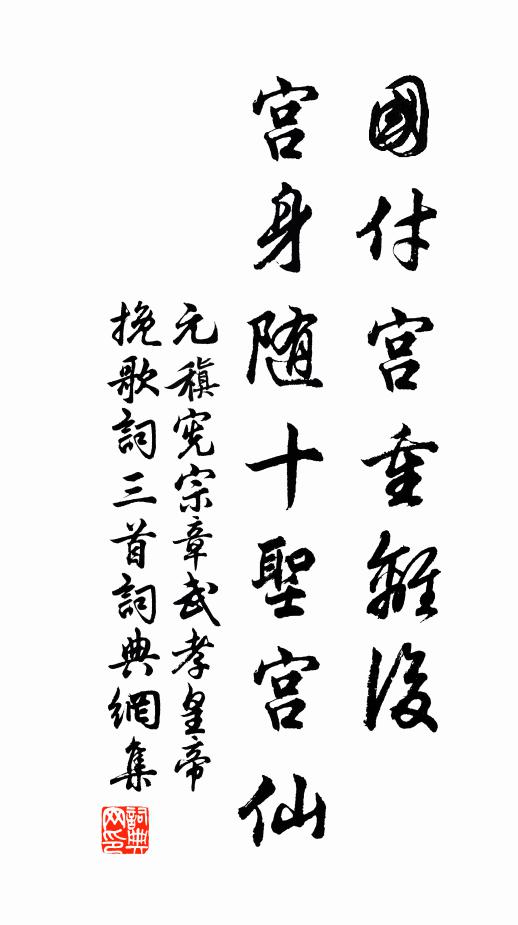 國付宫重離後
宫身随十聖宫仙
元稹宪宗章武孝皇帝
挽歌詞三首詞典網集
詞典网印